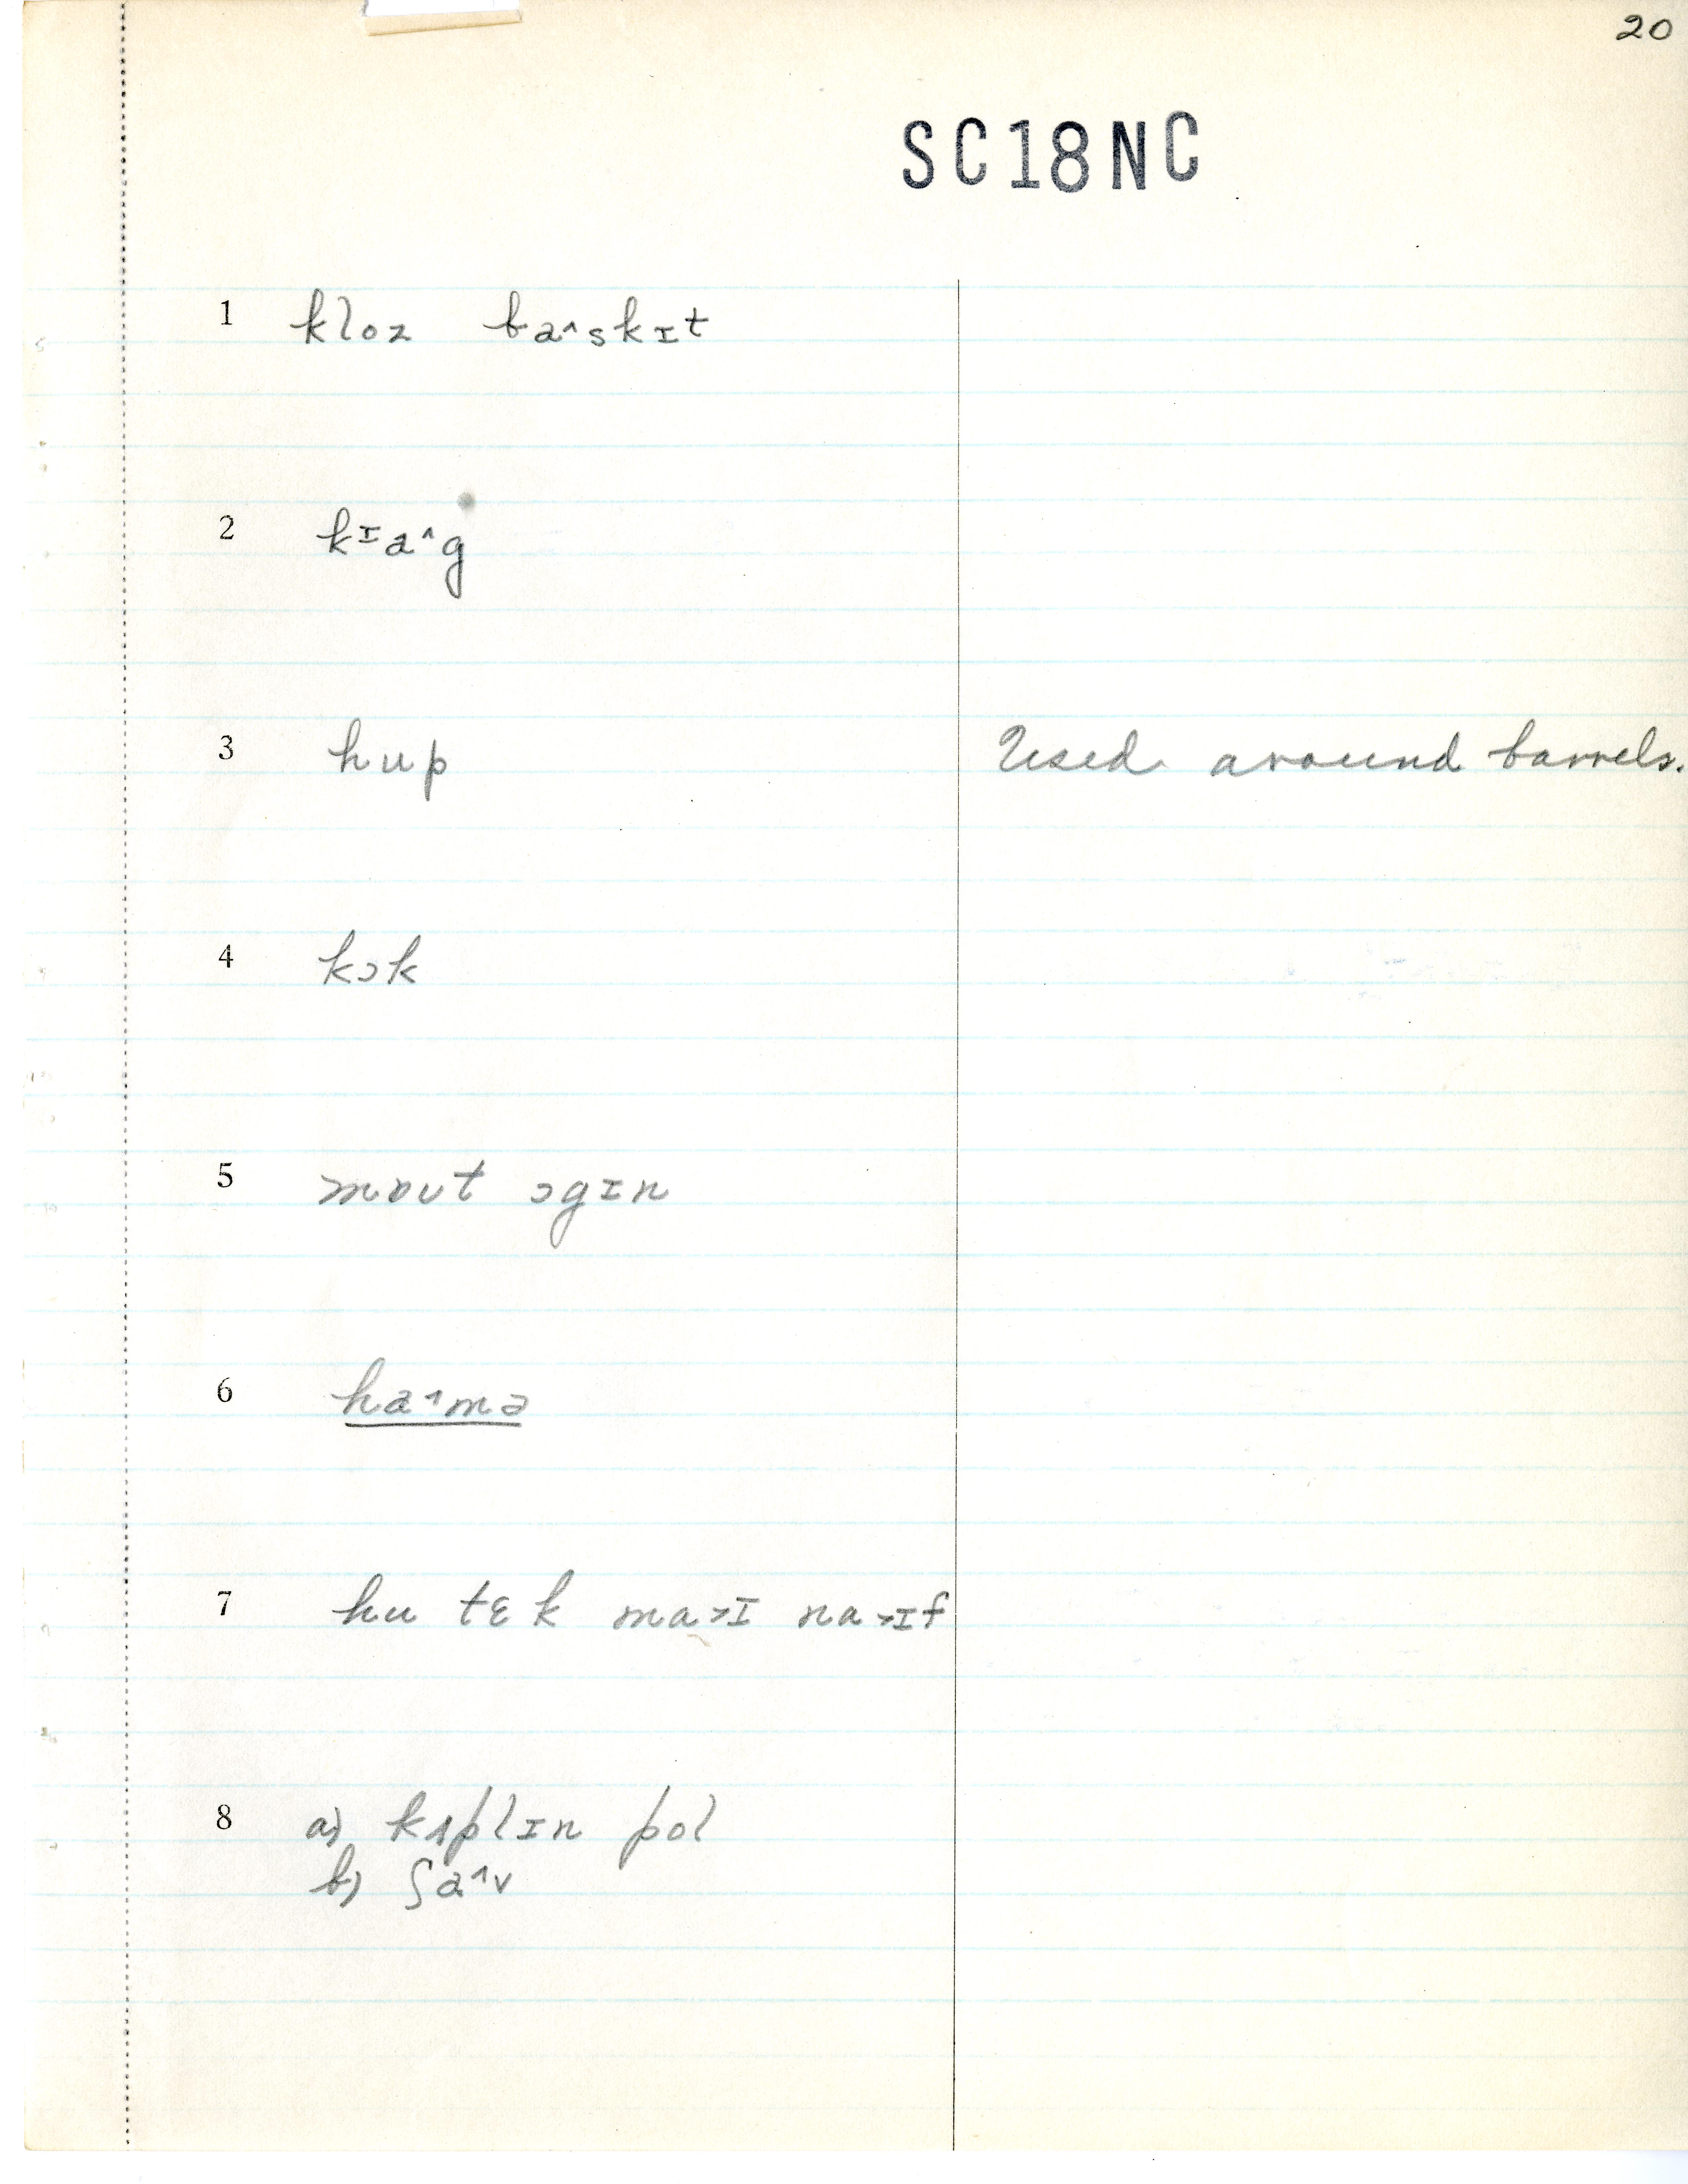 20
SC18NC
1 kloz ba^skɪt
2 kɪa^g
3 hup Used around barrels.
4 kɔk
5 mɒʊt ɔgɪn
6 ha^mə
7 hu tɛk ma>ɪ na>ɪf
8 a) kʌplɪn pol
b) ʃa^v